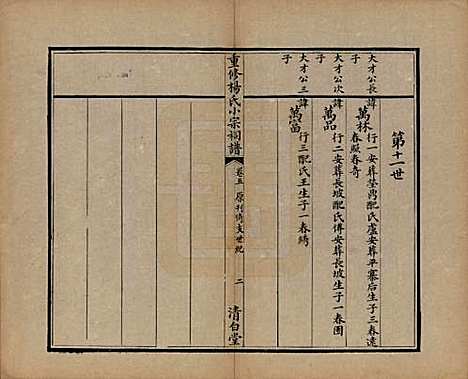 第十一世
大才公長子
諱萬林 行一安葬瑩禺配氏盧安葬平寨后生子三春遠
春熙春奇
大才公次子
諱萬品 行二安葬長坡配氏傅安葬長坡生子一春圃
大才公三子
諱萬富 行三配氏王生子一春綉
重修楊氏小宗祠譜
卷五 原刊傅支世紀
二
清白堂